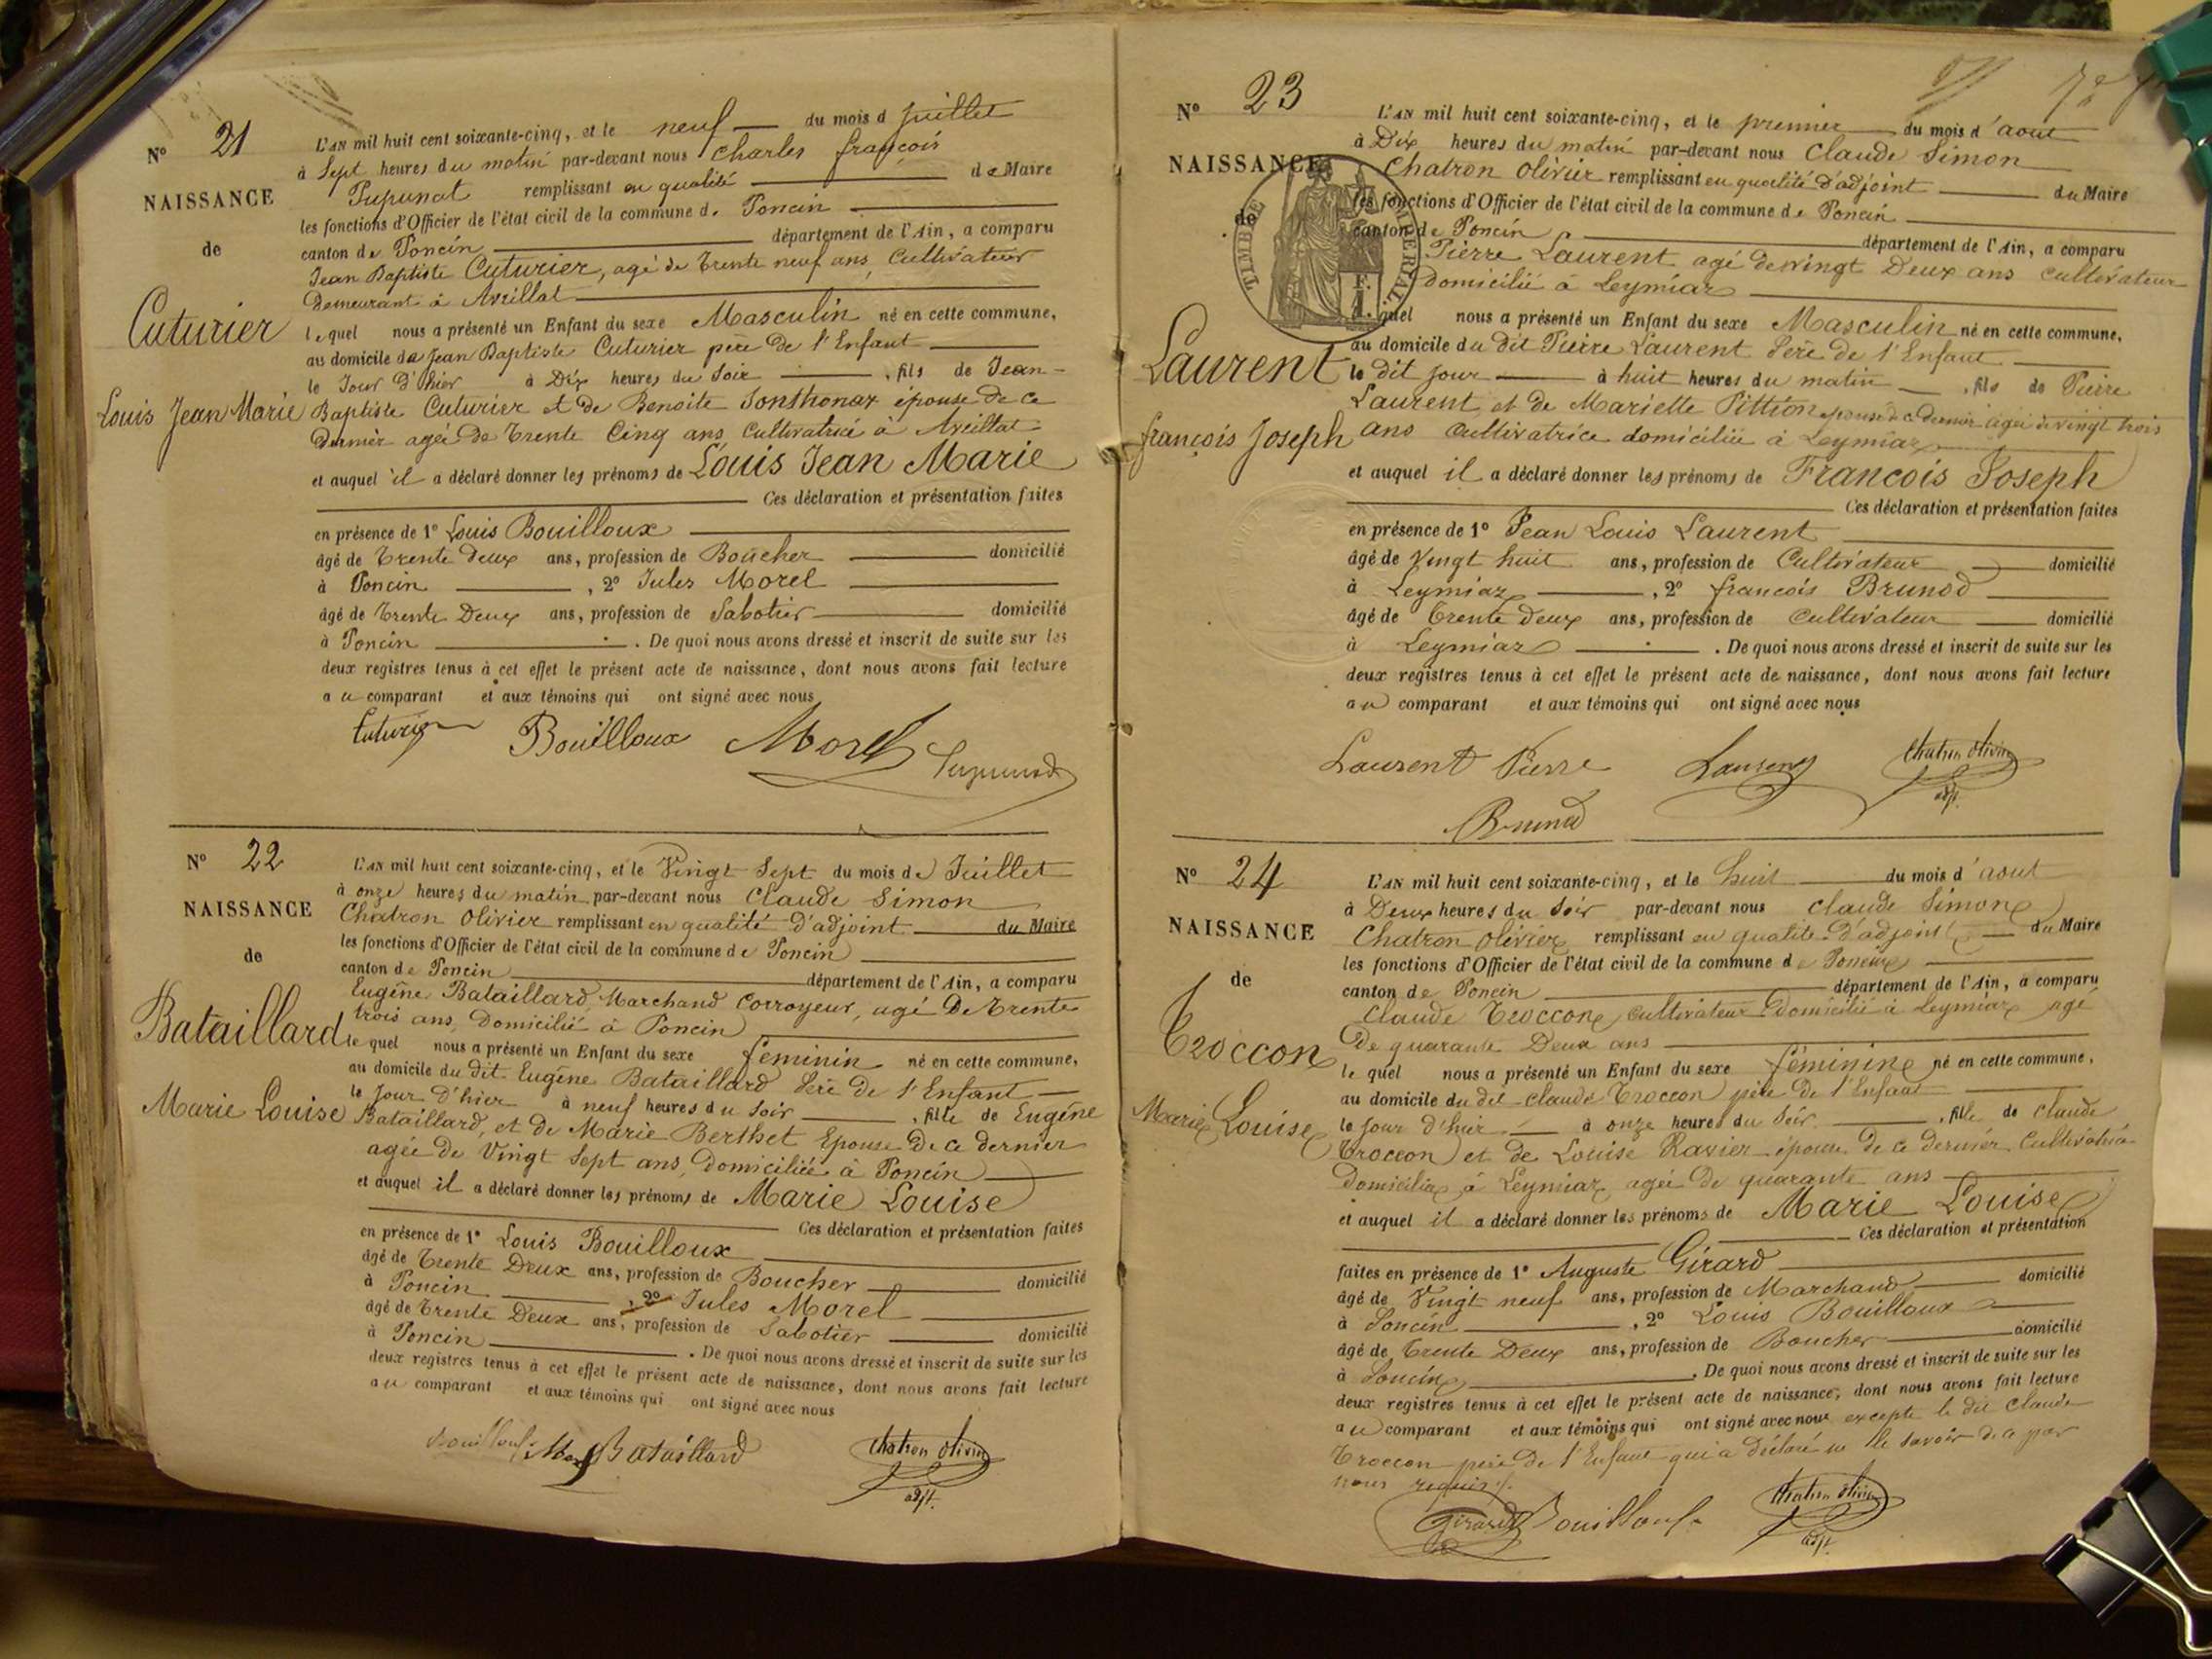 N° 21
NAISSANCE
de
Cuturier
Louis Jean Marie
L'AN mil huit cent soixante-cinq, et le neuf du mois d Juillet
à Sept heures du matin par-devant nous Charles françois
Pupunat remplissant en qualité de Maire
les fonctions d'Officier de l'état civil de la commune de Poncin
canton de Poncin département de l'Ain, a comparu
Jean Baptiste Cuturier, agé de trente neuf ans, Cultivateur
Demeurant à Avrillat
lequel nous a présenté un Enfant du sexe Masculin né en cette commune,
au domicile de Jean Baptiste Cuturier père de l'Enfant
le Jour d'hier à Dix heures du Soir, fils de Jean-
Baptiste Cuturier et de Benoite Sonthonax épouse de ce
dernier agée de trente Cinq ans, Cultivatrice à Avrillat
et auquel il a déclaré donner les prénoms de Louis Jean Marie
Ces déclaration et présentation faites
en présence de 1° Louis Bouilloux
âgé de trente deux ans, profession de Boucher domicilié
à Poncin, 2° Jules Morel
âgé de trente Deux ans, profession de Sabotier domicilié
à Poncin. De quoi nous avons dressé et inscrit de suite sur les
deux registres tenus à cet effet le présent acte de naissance, dont nous avons fait lecture
au comparant et aux témoins qui ont signé avec nous
Cuturier Bouilloux Morel Pupunat
N° 22
NAISSANCE
de
Bataillard
Marie Louise
L'AN mil huit cent soixante-cinq, et le Vingt Sept du mois de Juillet
à onze heures du matin par-devant nous Claude Simon
Chatron Olivier remplissant en qualité d'adjoint du Maire
les fonctions d'Officier de l'état civil de la commune de Poncin
canton de Poncin département de l'Ain, a comparu
Eugène Bataillard, Marchand Corroyeur, agé De trente
trois ans, Domicilié à Poncin
lequel nous a présenté un Enfant du sexe féminin né en cette commune,
au domicile du dit Eugène Bataillard Père de l'Enfant
le Jour d'hier à neuf heures du Soir, fille de Eugène
Bataillard, et de Marie Berthet Epouse De ce dernier
agée de Vingt Sept ans, Domiciliée à Poncin
et auquel il a déclaré donner les prénoms de Marie Louise
Ces déclaration et présentation faites
en présence de 1° Louis Bouilloux
âgé de trente Deux ans, profession de Boucher domicilié
à Poncin, 2° Jules Morel
âgé de trente Deux ans, profession de Sabotier domicilié
à Poncin. De quoi nous avons dressé et inscrit de suite sur les
deux registres tenus à cet effet le présent acte de naissance, dont nous avons fait lecture
au comparant et aux témoins qui ont signé avec nous
Bouilloux Morel Bataillard Chatron Olivier
adjt.
N° 23
NAISSANCE
de
TIMBRE IMPERIAL
1 F.
Laurent
françois Joseph
L'AN mil huit cent soixante-cinq, et le premier du mois d'aout
à Dix heures du matin par-devant nous Claude Simon
Chatron Olivier remplissant en qualité d'adjoint du Maire
les fonctions d'Officier de l'état civil de la commune de Poncin
canton de Poncin département de l'Ain, a comparu
Pierre Laurent agé de vingt Deux ans cultivateur
Domicilié à Leymiaz
lequel nous a présenté un Enfant du sexe Masculin né en cette commune,
au domicile du dit Pierre Laurent Père de l'Enfant
le dit jour à huit heures du matin, fils de Pierre
Laurent et de Mariette Pittion épouse de ce dernier agée de vingt trois
ans cultivatrice domiciliée à Leymiaz
et auquel il a déclaré donner les prénoms de François Joseph
Ces déclaration et présentation faites
en présence de 1° Jean Louis Laurent
âgé de Vingt huit ans, profession de Cultivateur domicilié
à Leymiaz, 2° françois Brunod
âgé de trente Deux ans, profession de cultivateur domicilié
à Leymiaz. De quoi nous avons dressé et inscrit de suite sur les
deux registres tenus à cet effet le présent acte de naissance, dont nous avons fait lecture
au comparant et aux témoins qui ont signé avec nous
Laurent Pierre Laurent Chatron Olivier
adjt.
Brunod
N° 24
NAISSANCE
de
Troccon
Marie Louise
L'AN mil huit cent soixante-cinq, et le huit du mois d'aout
à Deux heures du Soir par-devant nous Claude Simon
Chatron Olivier remplissant en qualité d'adjoint du Maire
les fonctions d'Officier de l'état civil de la commune de Poncin
canton de Poncin département de l'Ain, a comparu
Claude Troccon cultivateur Domicilié à Leymiaz agé
De quarante Deux ans
lequel nous a présenté un Enfant du sexe féminin né en cette commune,
au domicile du dit Claude Troccon père de l'Enfant
le jour d'hier à onze heures du Soir, fille de Claude
Troccon et de Louise Ravier épouse de ce dernier Cultivatrice
Domiciliée à Leymiaz agée de quarante ans
et auquel il a déclaré donner les prénoms de Marie Louise
Ces déclaration et présentation
faites en présence de 1° Auguste Girard
âgé de Vingt neuf ans, profession de Marchand domicilié
à Poncin, 2° Louis Bouilloux
âgé de trente Deux ans, profession de Boucher domicilié
à Poncin. De quoi nous avons dressé et inscrit de suite sur les
deux registres tenus à cet effet le présent acte de naissance, dont nous avons fait lecture
au comparant et aux témoins qui ont signé avec nous excepté le dit Claude
Troccon père de l'Enfant qui a déclaré ne le savoir de ce par
nous requis
Girard Bouilloux Chatron Olivier
adjt.